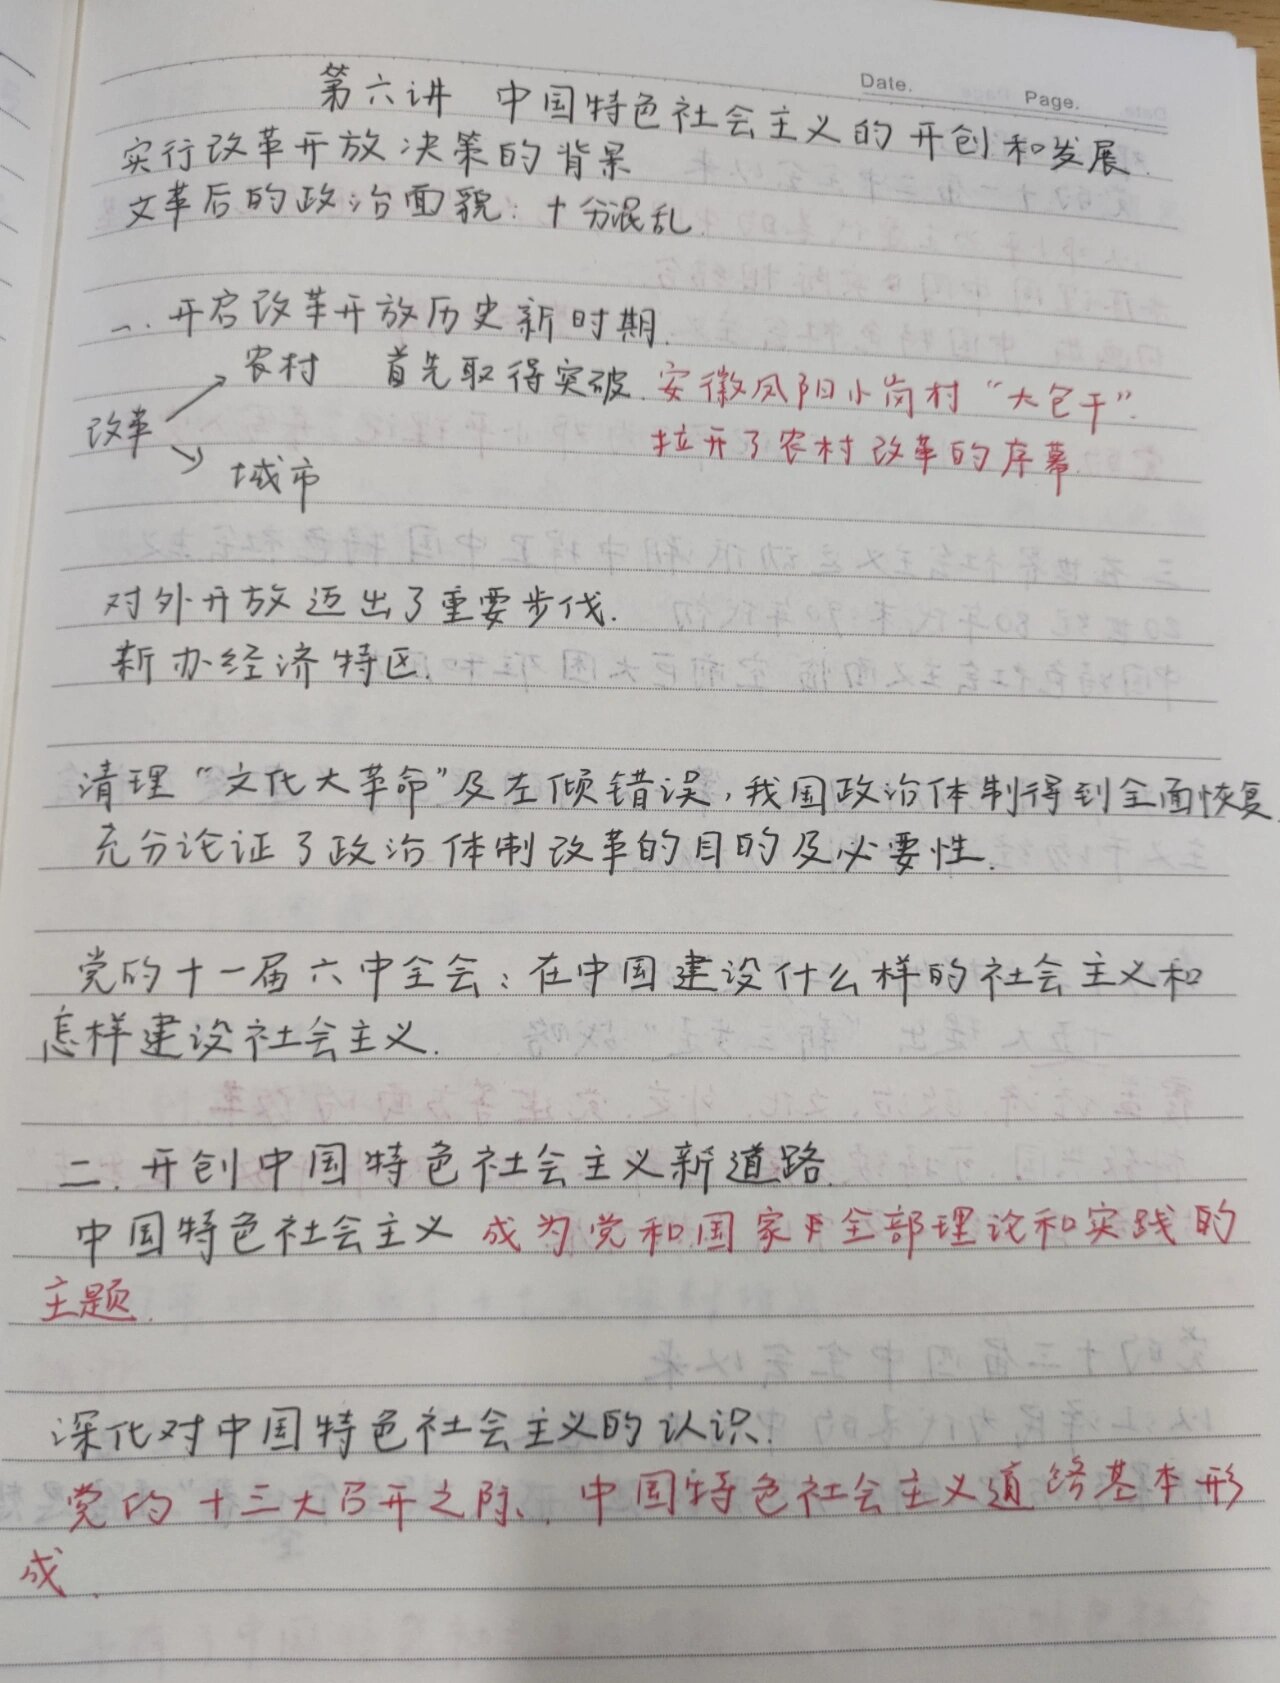 Date.
Page.
第六讲 中国特色社会主义的开创和发展.
实行改革开放决策的背景
文革后的政治面貌：十分混乱.
一.开启改革开放历史新时期.
农村 首先取得突破.安徽凤阳小岗村“大包干”.
改革 拉开了农村改革的序幕.
城市
对外开放迈出了重要步伐.
新办经济特区.
清理“文化大革命”及左倾错误,我国政治体制得到全面恢复.
充分论证了政治体制改革的目的及必要性.
党的十一届六中全会：在中国建设什么样的社会主义和
怎样建设社会主义.
二.开创中国特色社会主义新道路.
中国特色社会主义 成为党和国家 全部理论和实践的
主题.
深化对中国特色社会主义的认识.
党的十三大召开之际.中国特色社会主义道路基本形
成.